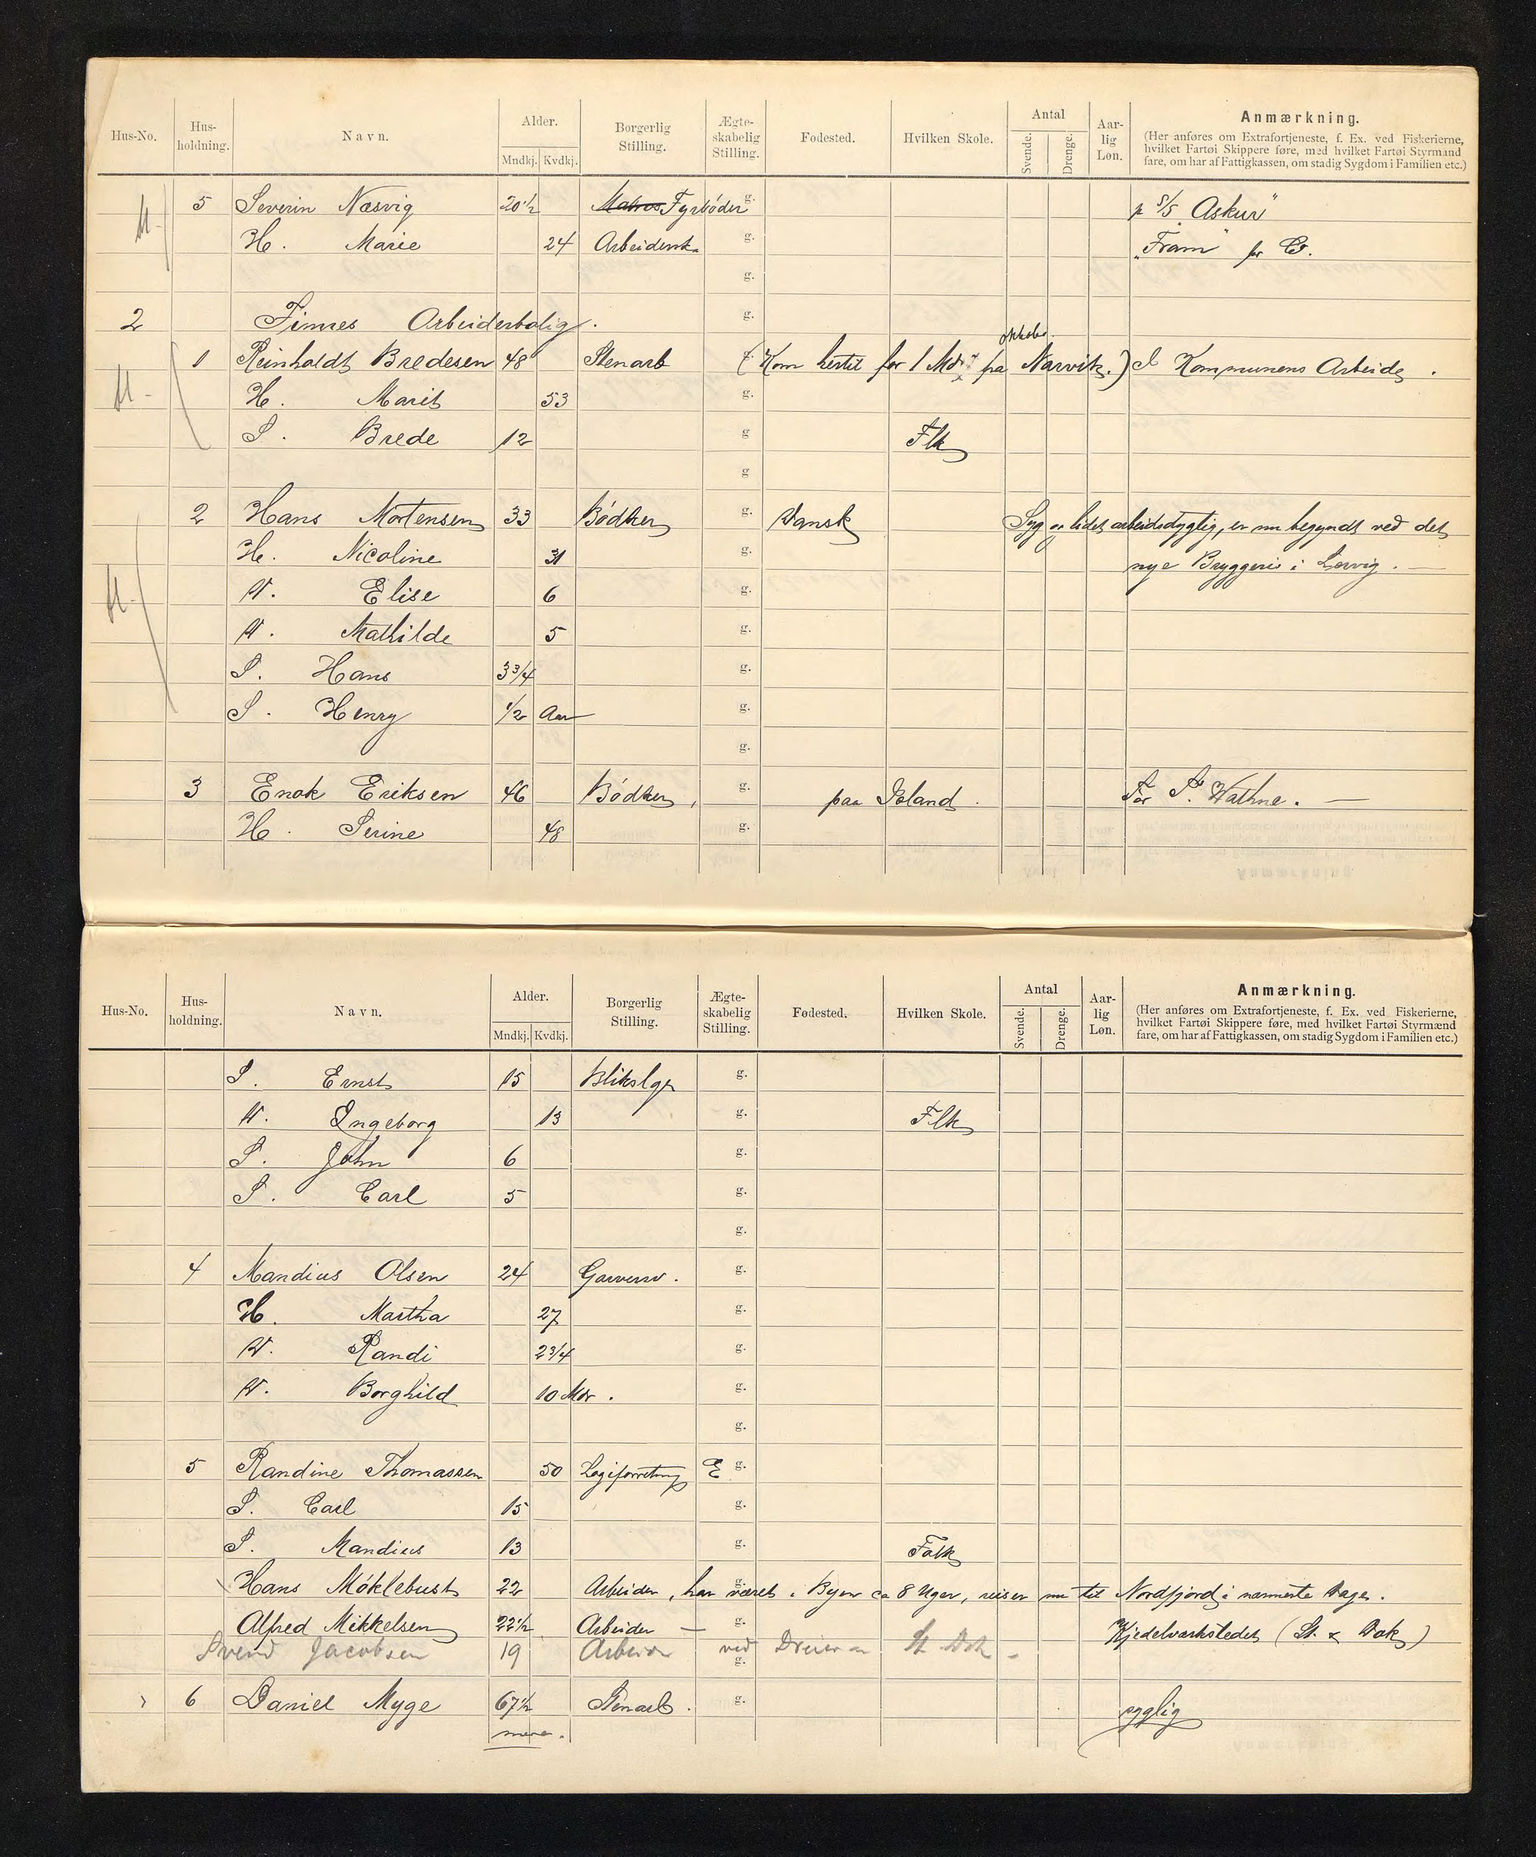 Hus-No. Hus-holdning. Navn. Alder. Mndkj. Kvdkj. Borgerlig Stilling. Ægte-skabelig Stilling. Fødested. Hvilken Skole. Antal Svende. Drenge. Aar-lig Løn. Anmærkning.
(Her anføres om Extrafortjeneste, f. Ex. ved Fiskerierne,
hvilket Fartøi Skippere føre, med hvilket Fartøi Styrmænd
fare, om har af Fattigkassen, om stadig Sygdom i Familien etc.)
M. 5 Severin Næsvig 20½ Matros Fyrbøder g. p S/S. Askur"
H. Marie 24 g. "Fram" for C.
g.
2 Finnes Arbeiderbolig. g.
1 Reinholdt Bredesen 48 Stenarb (Kom hertil for 1 Mdr pa Narvik.) I Kommunens Arbeide.
M. H. Marit 53 g.
S. Brede 12 g Flk
g
2 Hans Mortensen 33 Bødker g. Dansk Syg og lidet arbeidsdygtig, er nu begyndt ved det
H. Nicoline 31 g. nye Bryggeri i Lervig. —
M. D. Elise 6 g.
D. Mathilde 5 g.
S. Hans 3 3/4 g.
S. Henry 1/2 Aar g.
g.
3 Enok Eriksen 46 Bødker, g. paa Island. For Wathne. —
H. Serine 48 g.
Hus-No. Hus-holdning. Navn. Alder. Mndkj. Kvdkj. Borgerlig Stilling. Ægte-skabelig Stilling. Fødested. Hvilken Skole. Antal Svende. Drenge. Aar-lig Løn. Anmærkning.
(Her anføres om Extrafortjeneste, f. Ex. ved Fiskerierne,
hvilket Fartøi Skippere føre, med hvilket Fartøi Styrmænd
fare, om har af Fattigkassen, om stadig Sygdom i Familien etc.)
S. Ernst 15 Blikslgr g.
D. Ingeborg 13 g. Flk
S. John 6 g.
S. Carl 5 g.
g.
4 Mandius Olsen 24 Garversv. g.
H. Martha 27 g.
D. Randi 2 3/4 g.
D. Borghild 10 Mdr. g.
g.
5 Randine Thomassen 50 Logiforretning E g.
S. Carl 15 g.
S. Mandius 13 g. Folk
Hans Møklebust 22 Arbeider, har været i Byen ca 8 Uger, reiser nu til Nordfjord i nærmeste Dage.
Alfred Mikkelsen 22½ Arbeider — g. Kjedelværkstedet (St. & Dok)
Svend Jacobsen 19 Arbeider ved St. Dok - g.
6 Daniel Myge 67½ Stenarb. g. sygelig